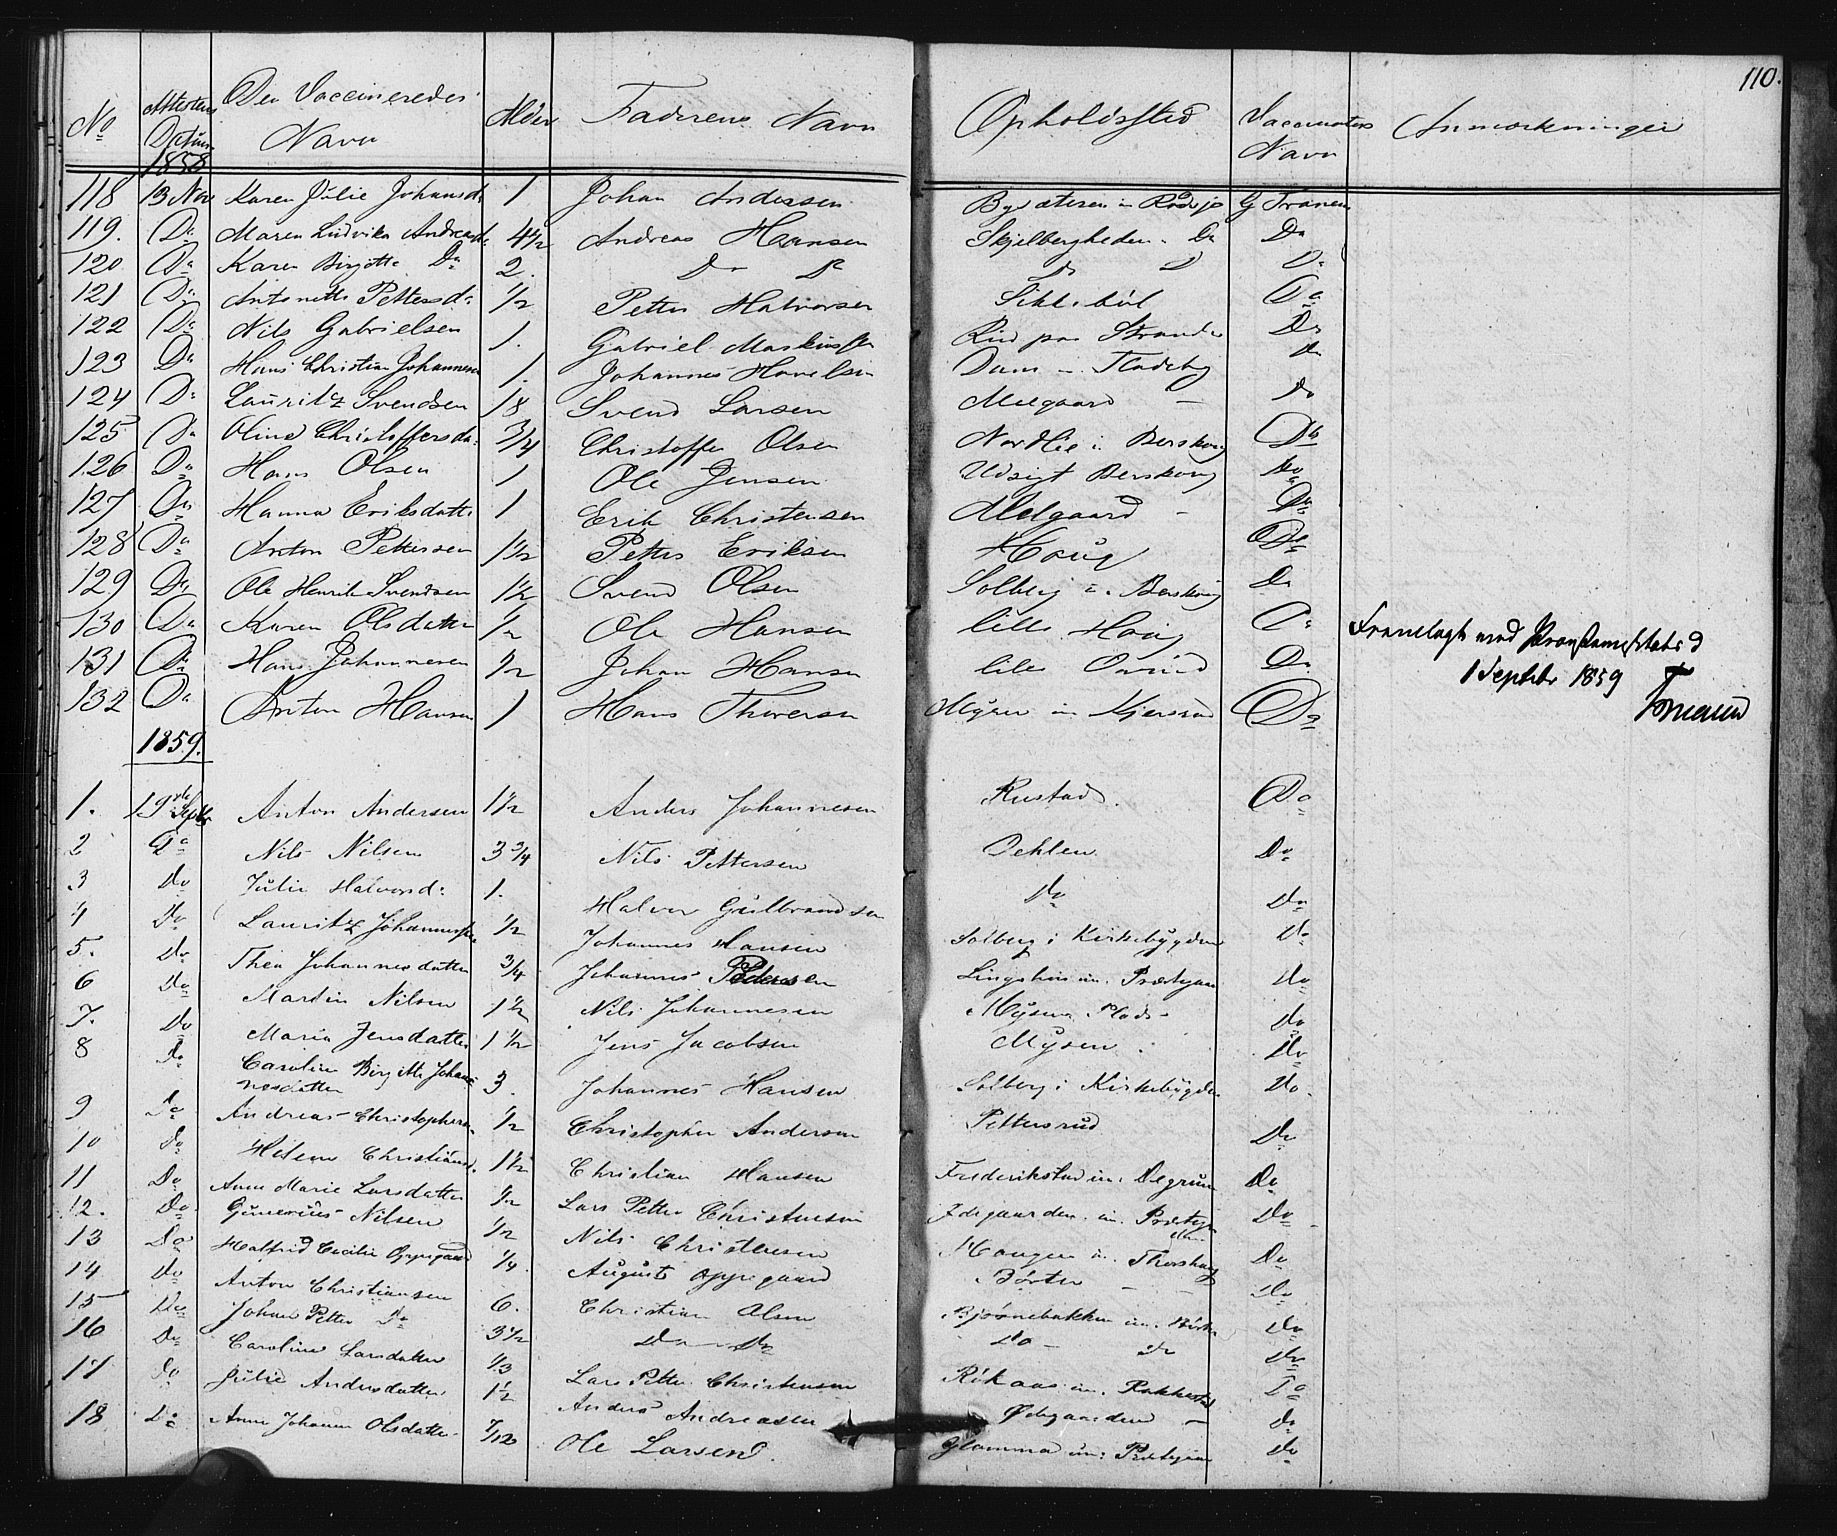 110.
No Attestens Datum Den Vaccineredes Navn Alder Faderens Navn Opholdssted Vaccinators Navn Anmærkninger
1858
118 13 Nov Karen Julie Johansd: 1 Johan Andersen Bysæteren i Rødenes G Tranem
119. Do Maren Ludvika Andreasd: 4 1/2 Andreas Hansen Skjelbergheden Do Do
120 Do Karen Birgitte Do 2. Do Do Do D Do
121 Do Antonette Pettersd: 1/2 Petter Halvorsen Sikkebøl Do
122 Do Nils Gabrielsen 1. Gabriel Markussen Rud paa Strande Do
123 Do Hans Christian Johannesen 1. Johannes Havelsen Dam - Fladeby Do
124 Do Lauritz Svendsen 18 Svend Larsen Melgaard - Do
125 Do Oline Christoffersda: 3/4 Christoffer Olsen Nordlie i Berskoug Do
126 Do Hans Olsen 1 Ole Jensen Udsigt Berskoug Do
127 Do Hanna Eriksdatter 1 Erik Christensen Melgaard - Do
128 Do Anton Pettersen 1 1/2 Petter Eriksen Houg Do
129 Do Ole Henrik Svendsen 1 1/2 Svend Olsen Solberg i Berskoug Do
130 Do Karen Olsdatter 1/2 Ole Hansen lille Houg Do
131 Do Hans Johannesen 1/2 Johan Hansen lille Do
132 Do Anton Hansen 1 Hans Thoresen Myren Do
Fremlagt med
1 Septbr 1859
1859.
1. 19de Septbr Anton Andersen 1 1/2 Anders Johannesen Rustad. Do
2 Do Nils Nilsen 3 3/4 Nils Pettersen Oehlen Do
3 Do Julie Halvorsd: 1. Halvor Gulbrandsen Do Do
4 Do Lauritz Johannessen 1/2 Johannes Hansen Solberg i Kirkebygden Do
5. Do Thea Johannesdatter 3/4 Johannes Pedersen Do
6 Do Martin Nilsen 1 1/2 Nils Johannesen Mysen Plads Do
7. Do Maria Jensdatter 1 1/2 Jens Jacobsen Mysen. Do
8 Do Caroline Birgitte Johan
nesdatter 3. Johannes Hansen Solberg i Kirkebygden Do
9 Do Andreas Christophersen 1/2 Christopher Andersen Pettersrud Do
10 Do Helene Christiansd. 1 1/2 Christian Hansen Frederikstad Do
11 Do Anne Marie Larsdatter 1/2 Lars Petter Christensen Do
12. Do Gunerius Nilsen 1/2 Nils Christensen Haugen Do
13 Do Halfrid Cecilie Oppegaard 1/4 August Oppegaard Børter Do
14 Do Anton Christiansen 6. Christian Olsen Bjørnebakken Do
15 Do Johan Petter Do 3 1/2 Do - Do Do - Do Do
16 Do Caroline Larsdatter 1/3 Lars Petter Christensen Do
17 Do Julie Andersdatter 1 1/2 Anders Andreassen Ødegaarden - Do
18 Do Anne Johanne Olsdatter 7/12 Ole Larsen. Glomma Do